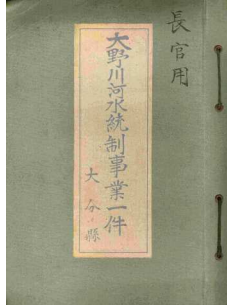 長官用
大野川河水統制事業一件
大分縣